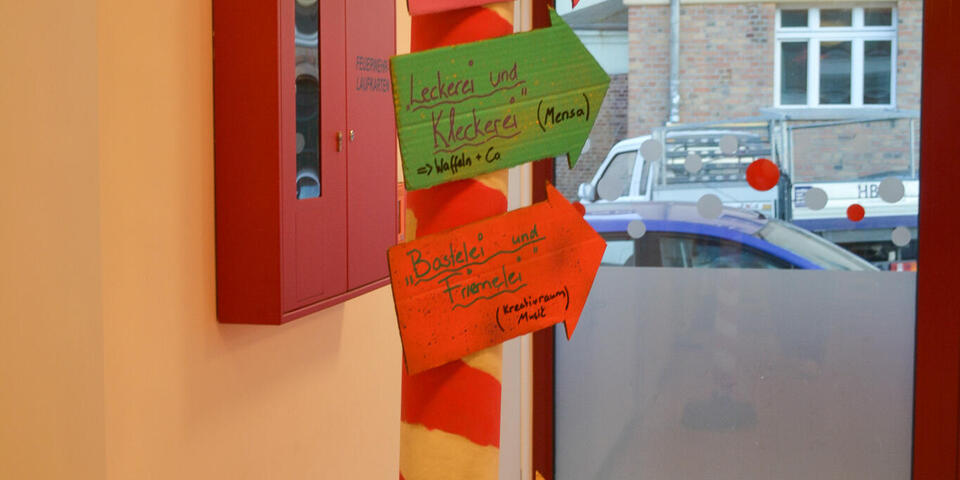 FEUERWEHR
LAUFKARTEN
„Leckerei und
Kleckerei"
(Mensa)
=> Waffeln + Co
„Bastelei und
Friemelei"
(Kreativraum)
Musik
HB